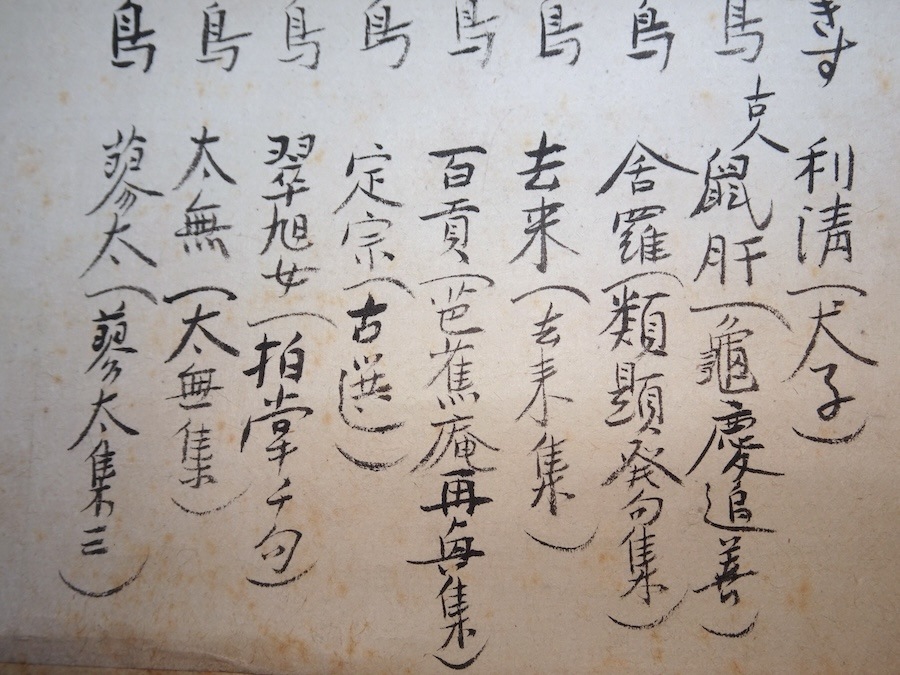 きす 利清(犬子)
鳥 古人 鼠肝(龜慶追善)
鳥 舎羅(類題発句集)
鳥 去来(去来集)
鳥 百貢(芭蕉庵再真集)
鳥 定宗(古選)
鳥 翠旭女(拍掌千句)
鳥 太無(太無集)
鳥 蓼太(蓼太集三)